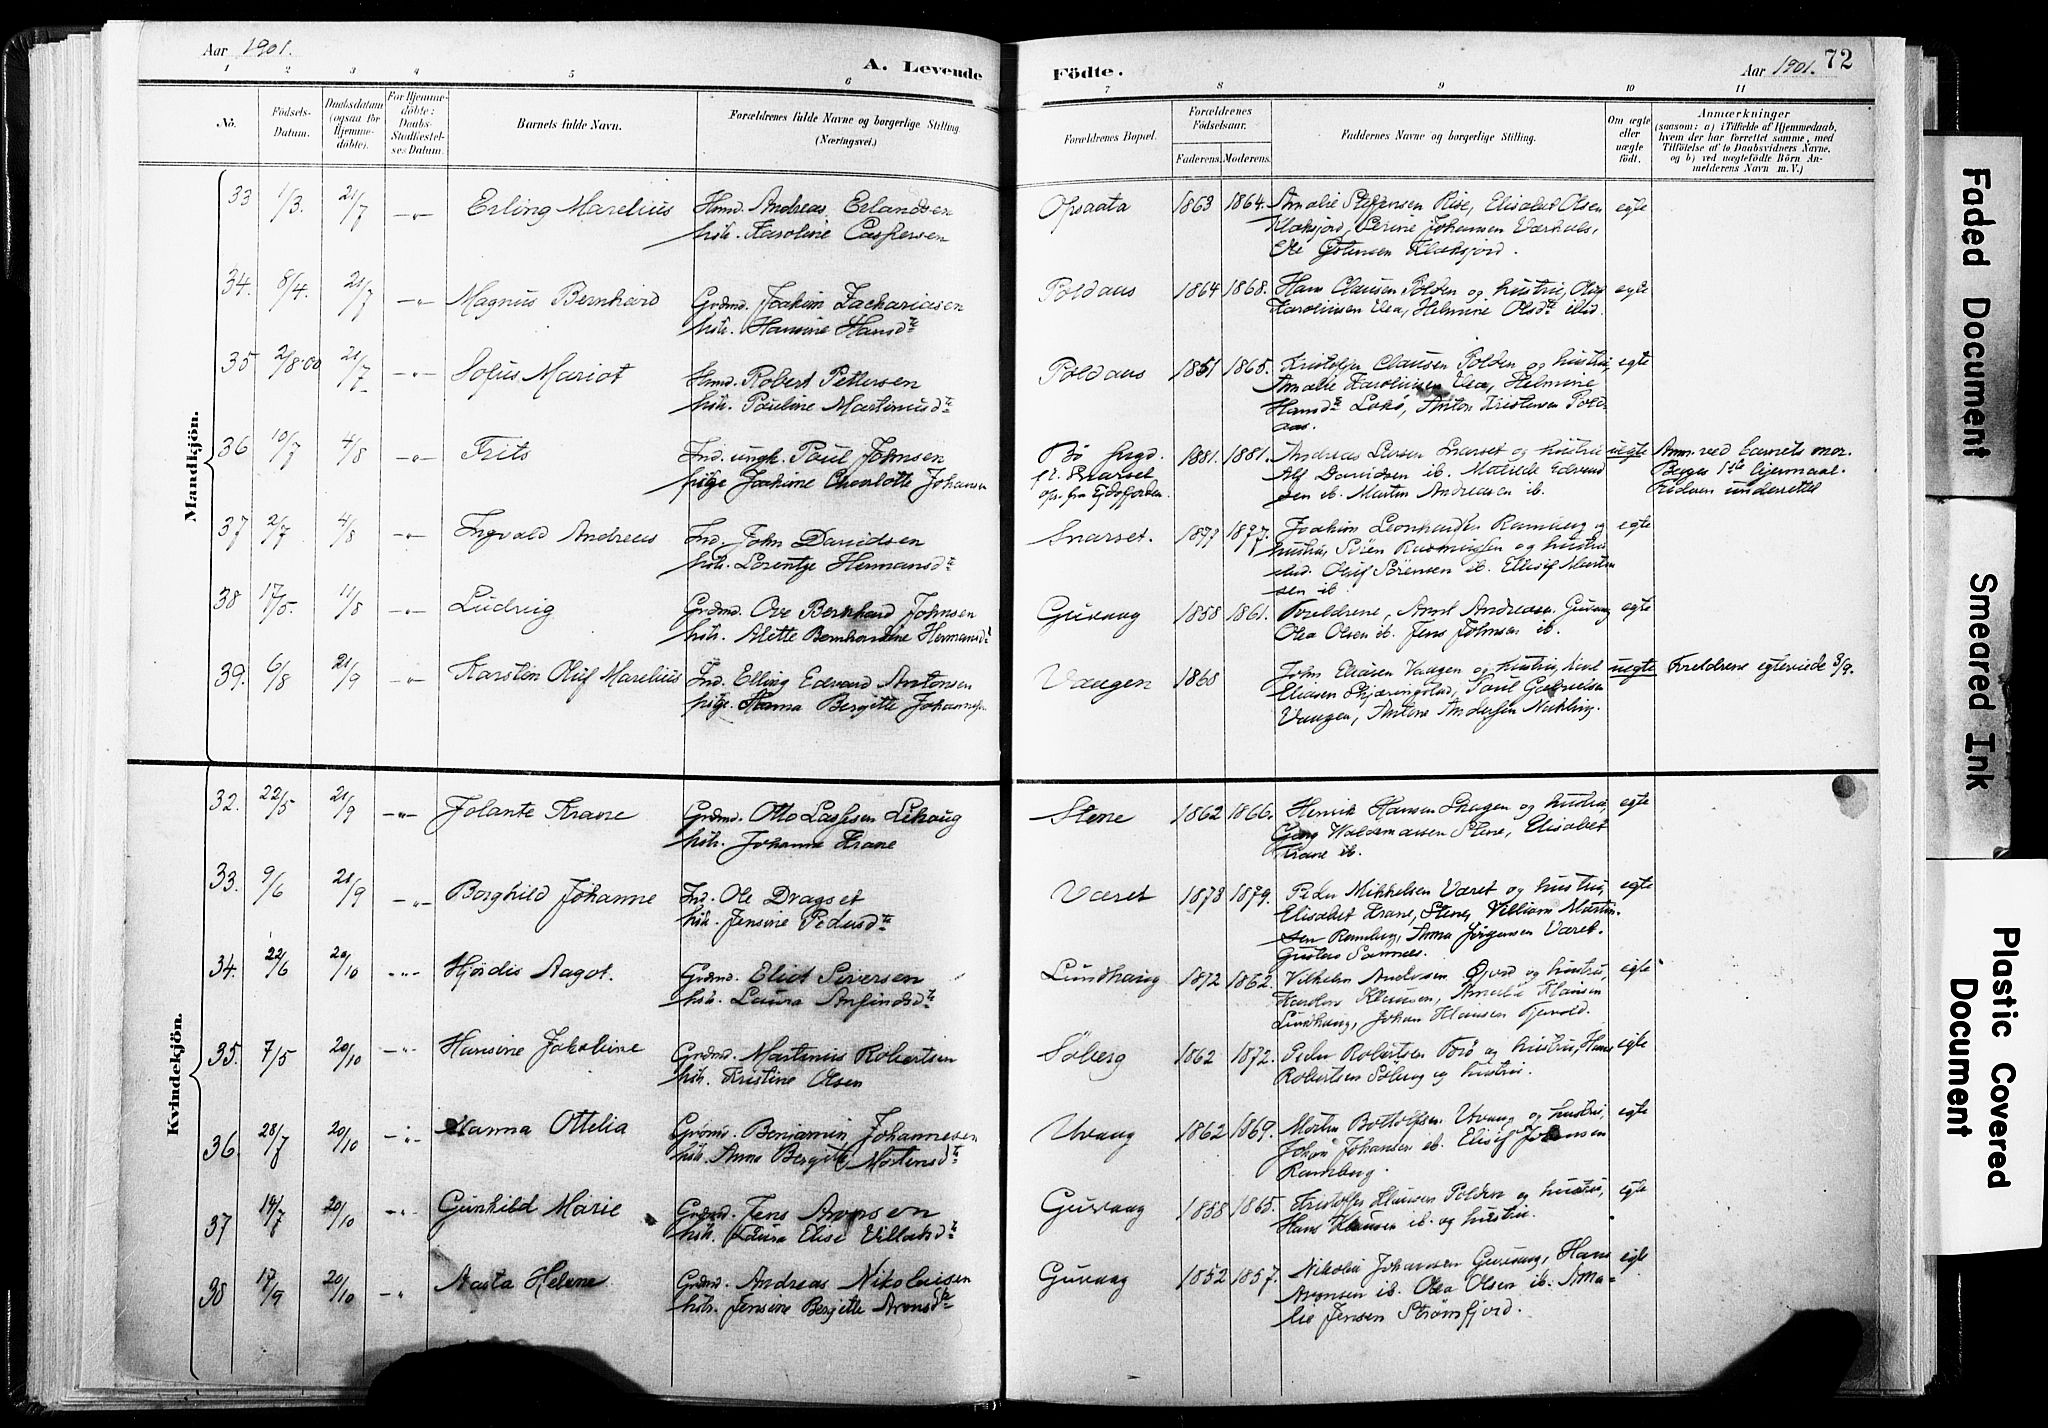 Aar 1901.
A. Levende Födte.
Aar 1901. 72
1 2 3 4 5 6 7 8 9 10 11
No.
Födsels-
Datum.
Daabsdatum
(ogsaa for
Hjemme-
döbte).
For Hjemme-
döbte:
Daabs-
Stadfæstel-
ses Datum.
Barnets fulde Navn.
Forældrenes fulde Navne og borgerlige Stilling
(Næringsvei.)
Forældrenes Bopæl.
Forældrenes
Födselsaar.
Faderens. Moderens.
Faddernes Navne og borgerlige Stilling.
Om ægte
eller
uægte
födt.
Anmærkninger
(saasom: a) i Tilfælde af Hjemmedaab,
hvem der har forrettet samme, med
Tilföielse af to Daabsvidners Navne,
og b) ved uægtefödte Börn An-
melderens Navn m. V.)
Mandkjön.
33 1/3. 21/7 -"- Erling Marelius
Hmd. Andreas Erlandsen
hst. Karoline Caspersen
Opsaata 1863 1864.
Amalie Steffensen Elisabet Olsen
Johansen
Ole
egte
34. 8/4. 21/7 -"- Magnus Bernhard
Grdmd. Joakim Zachariasen
hst. Hansine Hansdt
Poldaas 1864 1868.
Hans Clausen Polden og hustru, Olea
Karolinsen Vea, Helmine Olsdt ibid.
egte
35 2/8.00 21/7 -"- Sofus Mariot
Hmd. Robert Pettersen
hst. Pauline Martinusdt
Poldaas 1851 1865.
Kristoffer Clausen Polden og hustru,
Amalie Karolinsen Vea, Helmine
Hansdt Anton Kristensen Pold-
aas.
egte
36 10/7 4/8 -"- Frits
Ind. ungk. Paul Johnsen
pige Jakine Charlotte Johansen
Bø
opr. fra Eidsfjorden
1881. 1881.
Andreas Larsen Snarset og hustru
Alf Davidsen ib. Edvard
sen ib. Martin Andreasen ib.
uegte
Anm. ved barnets mor.
Begges 1ste leiermaal.
Fødsen underrettet
37 2/7 4/8 -"- Ingvald Andreas
Ind. John Davidsen
hst. Lorentze Hermansdt
Snarset. 1877 1877.
Joakim Leonhardsen Ramberg og
hustru, Søren Rasmussen og hustru
Oluf Sørensen ib. Ellisif Marten
sen ib.
egte
38 17/5. 11/8 -"- Ludvig
Grdmd. Ove Bernhard Johnsen
hst. Alette Bernhardine Hermansdt
Guvaag 1858 1861.
Foreldrene, Andreasen Guvaag
Olea Olsen ib. Jens Johnsen ib.
egte
39. 6/8 21/9 -"- Karsten Oluf Marelius
Ind. Elling Edvard Antonsen
pige. Hanna Bergitte Johannesen
Vaagen 1868
John Eliasen Vaagen og hustru,
Eliasen Skjæringstad, Paul Gabrielsen
Vaagen, Antone Andersen
uegte
Foreldrene egteviede 3/9.
Kvindekjön.
32. 22/5 21/9 -"- Jolante Krane
Grdmd. Otto Lassesen Lehaug
hst. Johanna Krane
Stene 1862 1866.
Henrik Hansen Skagen og hustru,
Georg Waldemarsen Stene, Elisabet
Krane ib.
egte
33. 9/6 21/9 -"- Borghild Johanne
Ind. Ole Dragset
hst. Jensine Pedersdt
Været 1873 1879.
Peder Mikkelsen Været og hustru,
Elisabet Krane, Stene, Villiam Martin-
sen Ramberg, Anna Jørgensen Været.
egte
34. 22/6 20/10 -"- Hjørdis Aagot.
Grdmd. Eliot Siversen
hst. Laura Arfindsdt
Lundhaug 1872 1862.
Vilhelm Andersen og hustru,
Karoline Klausen, Amalie Hansen
Lundhaug, Johan Klausen
egte
35. 7/5 20/10 -"- Hansine Jakobine
Grdmd. Martinus Robertsen
hst. Kristine Olsen
Søberg 1862 1872.
Peder Robertsen og hustru, Hans
Robertsen Søberg og hustru.
egte
36. 28/7 20/10 -"- Hanna Ottelia
Grdmd. Benjamin Johannesen
hst. Anne Bergitte Mortensdt
Uvaag 1862 1869.
Morten Bottolfsen Uvaag og hustru,
Johan Johansen ib. Elisif Johansen
Ramberg.
egte
37 14/7 20/10 -"- Gunhild Marie
Grdmd. Jens Aronsen
hst. Laura Elise Villatsdt
Guvaag 1858 1865.
Kristoffer Klausen Polden og hustru,
Hans Klausen ib. og hustru.
egte
38 17/9 20/10 -"- Aasta Helene
Grdmd. Andreas Nikolaisen
hst. Jensine Bergitte Aronsdt
Guvaag 1852 1857.
Nikolai Johansen Guvaag, Hans
Aronsen ib. Olea Olsen ib. Ama-
lie Jensen Strømfjord.
egte
Faded Document
Smeared Ink
Plastic Covered
Document